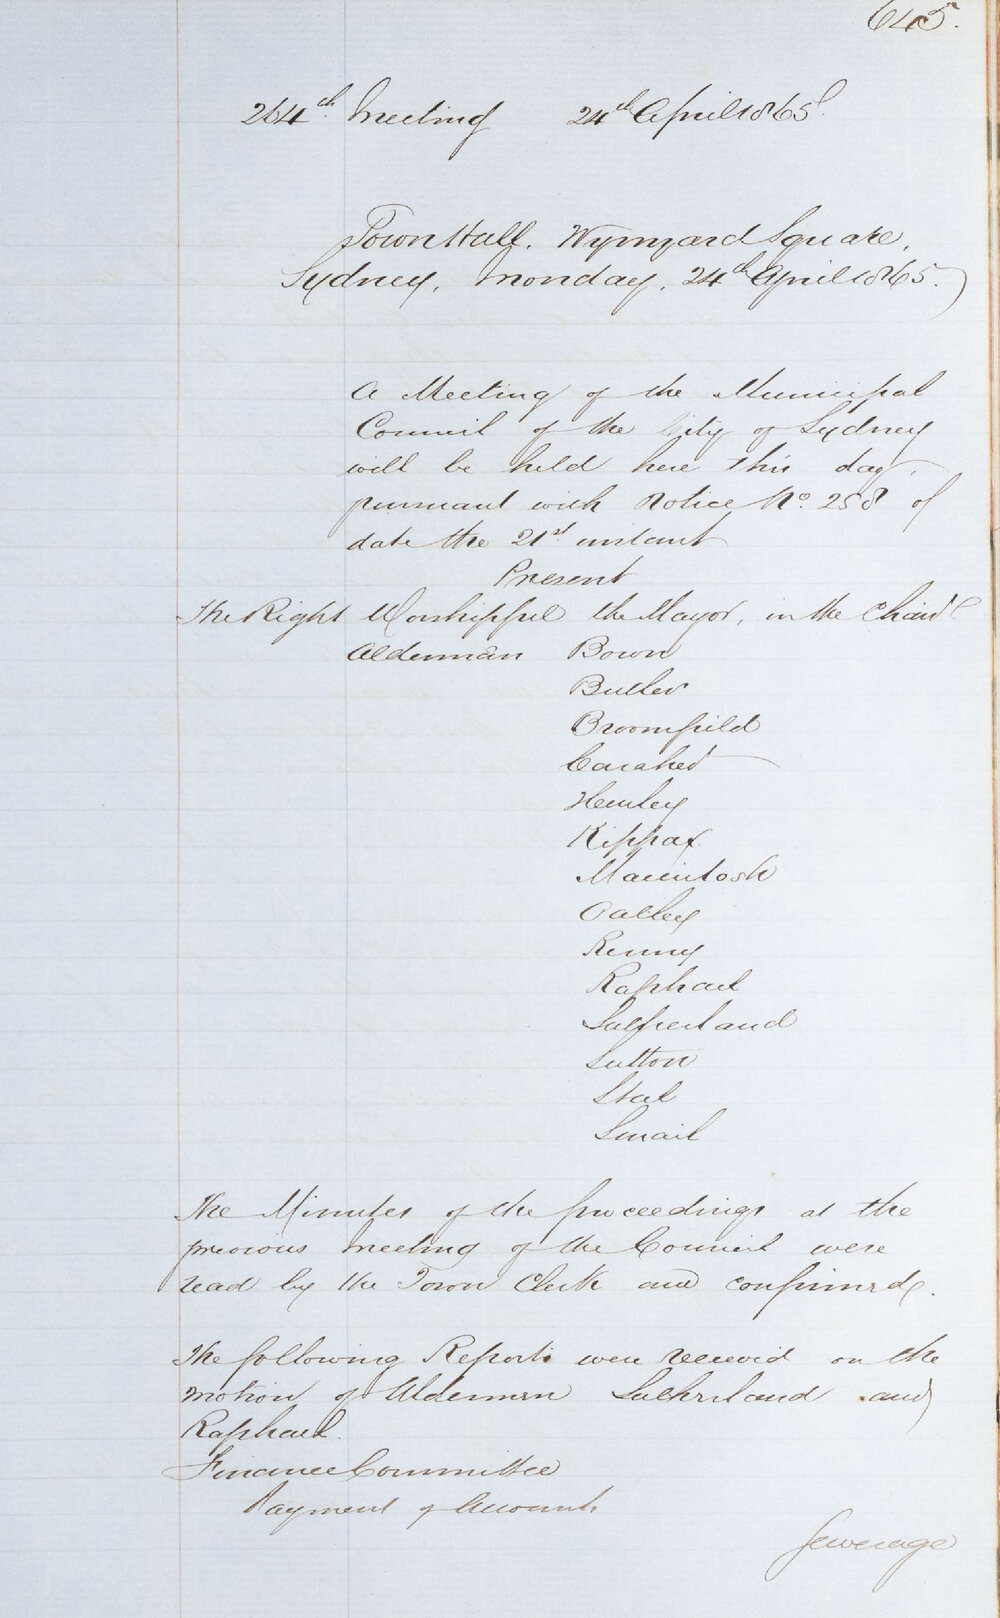 645.
264th. Meeting 24th April 1865.
Town Hall. Wynyard Square,
Sydney, Monday, 24th April 1865.
A Meeting of the Municipal
Council of the City of Sydney
will be held here this day.
pursuant with Notice No. 258 of
date the 21st. instant
Present
The Right Worshipful the Mayor, in the Chair
Alderman Bown
Butler
Broomfield
Caraher
Henley
Kippax
Macintosh
Oatley
Renny
Raphael
Sutherland
Sutton
Steel
Smail
The Minutes of the proceedings at the
previous meeting of the Council were
read by the Town Clerk and confirmed.
The following Reports were received on the
motion of Aldermen Sutherland and
Raphael.
Finance Committee
Payment of Accounts
Sewerage